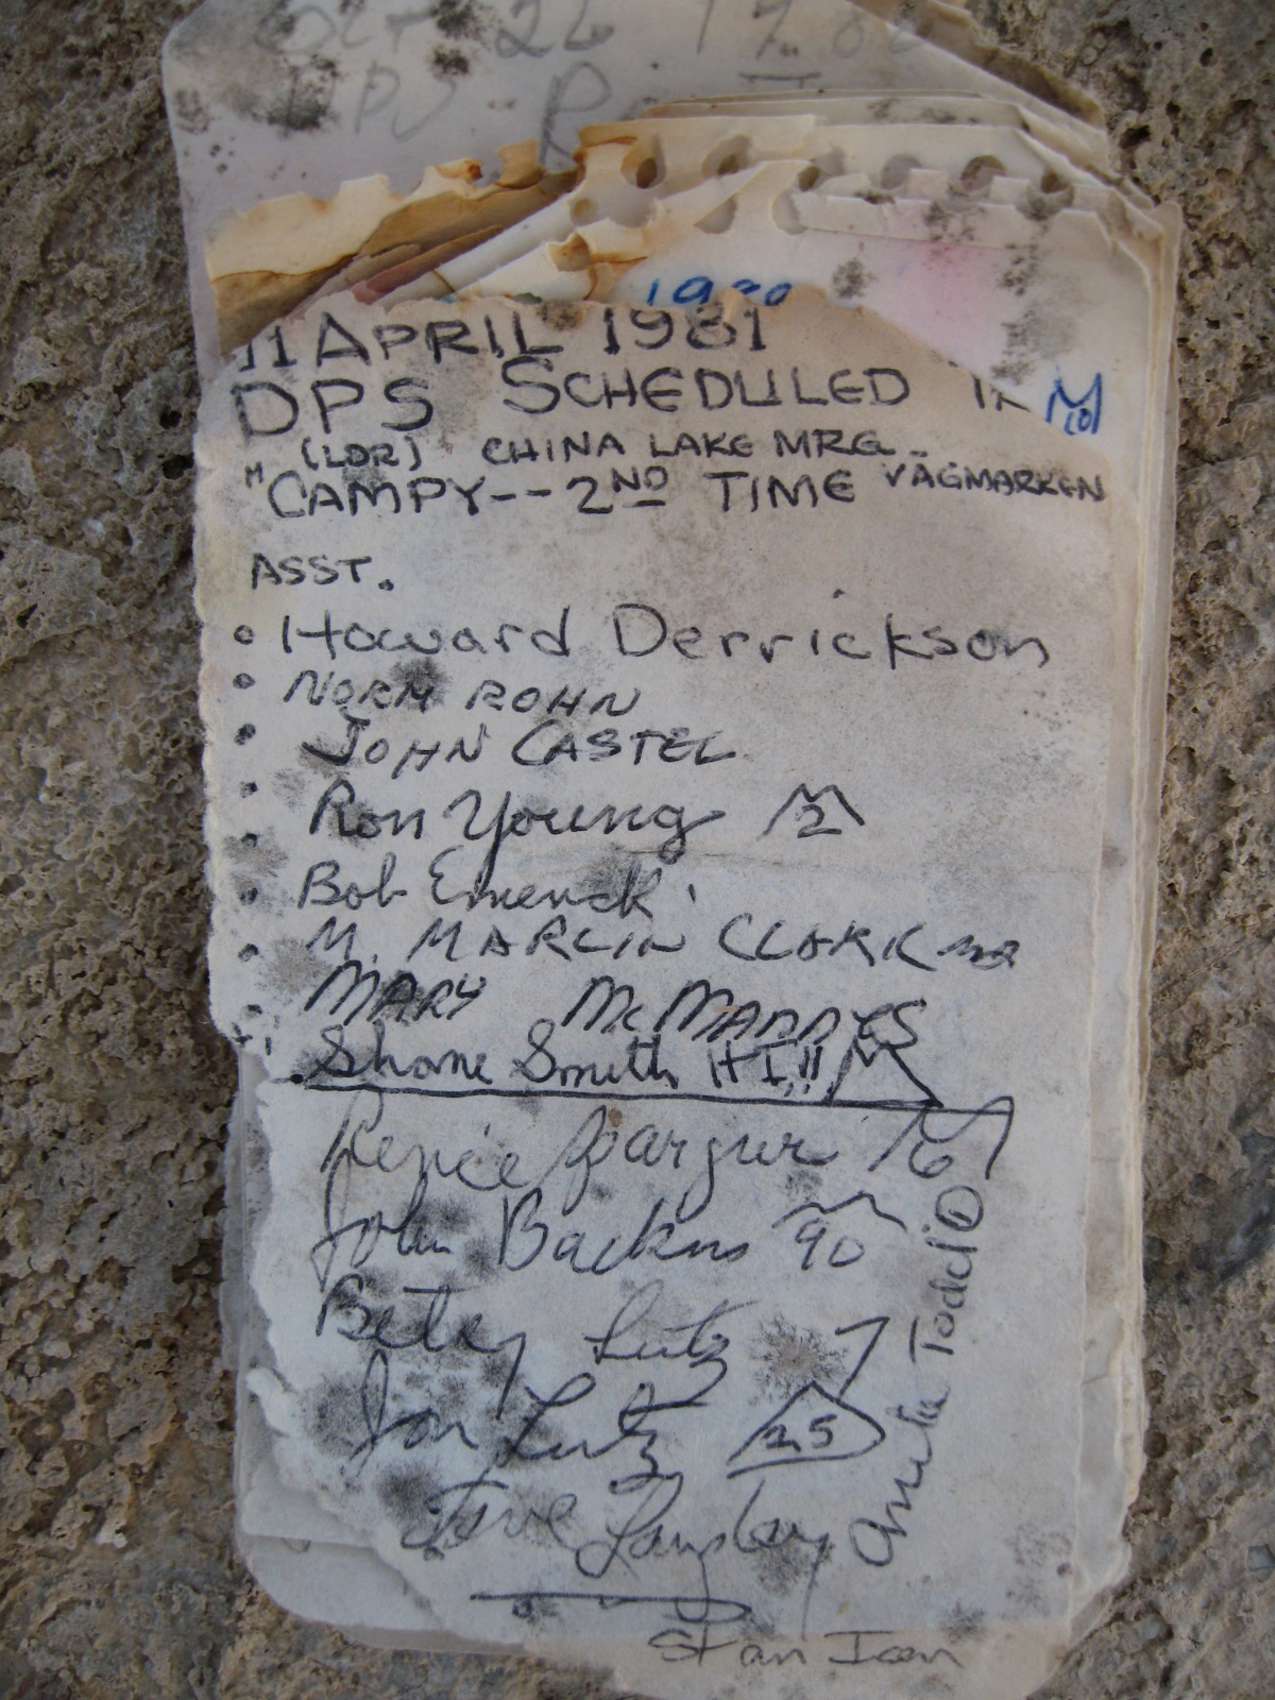 Oct 26
DPS
11 APRIL 1981
DPS SCHEDULED
(LDR) CHINA LAKE MRG.
"CAMPY -- 2ND TIME VAGMARKEN
ASST.
Howard Derrickson
NORM ROHN
JOHN CASTEL
Ron Young 2
Bob Emerick
M. MARLIN CLARK
MARY McMANNES
Shane Smith HI!!
Renée
John Backus 90
Betsy Lutz
Jon Lutz 25
Anita Todd 1
Stan